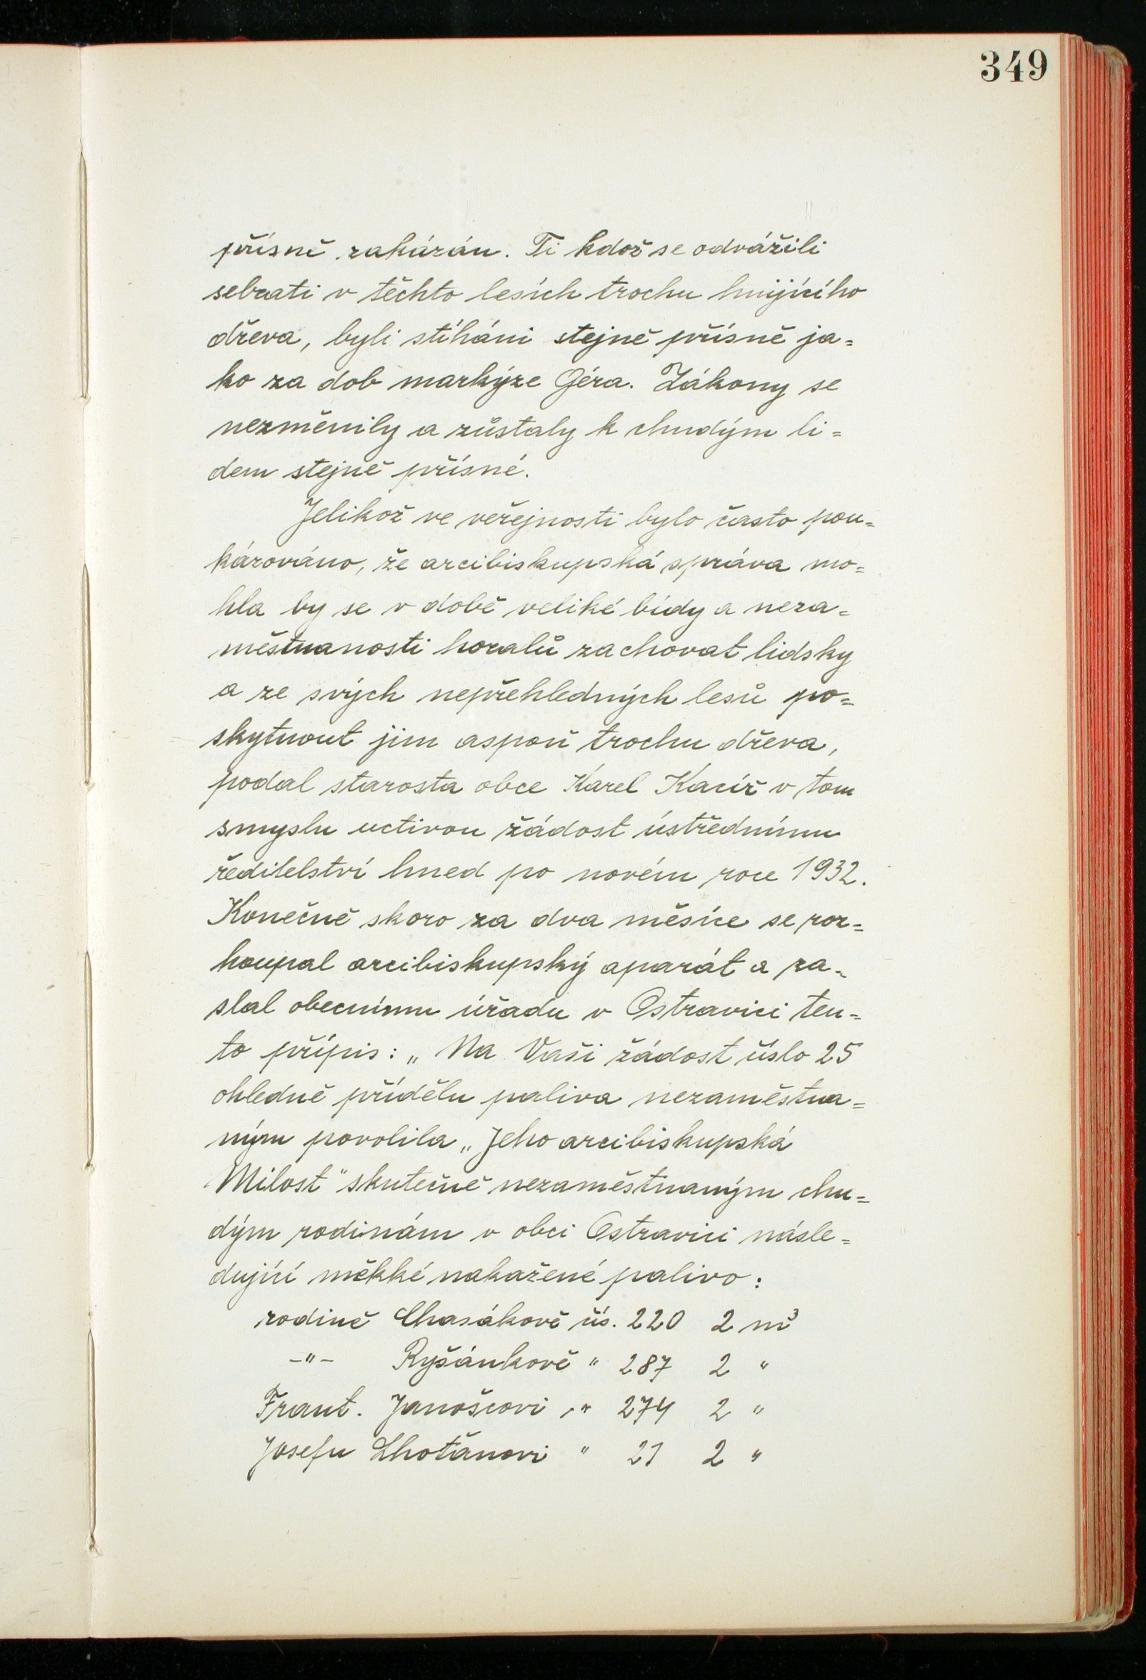 349
přísně zakázán. Ti kdož se odvážili
sebrati v těchto lesích trochu hnijícího
dřeva, byli stíháni stejně přísně ja=
ko za dob markýze Géra. Zákony se
nezměnily a zůstaly k chudým li=
dem stejně přísné.
Jelikož ve veřejnosti bylo často pou=
kázováno, že arcibiskupská správa mo=
hla by se v době veliké bídy a neza=
městnanosti horalů zachovat lidsky
a ze svých nepřehledných lesů po=
skytnout jim aspoň trochu dřeva,
podal starosta obce Karel Kacíř v tom
smyslu uctivou žádost ústřednímu
ředitelství hned po novém roce 1932.
Konečně skoro za dva měsíce se roz=
houpal arcibiskupský aparát a za=
slal obecnímu úřadu v Ostravici ten=
to přípis: „Na Vaši žádost číslo 25
ohledně přídělu paliva nezaměstna=
ným povolila „Jeho arcibiskupská
Milost" skutečně nezaměstnaným chu=
dým rodinám v obci Ostravici násle=
dující měkké nakažené palivo:
rodině Chasákově čís. 220 2 m³
-"- Ryšánkově " 287 2 "
Frant. Janošcovi " 274 2 "
Josefu Lhoťanovi " 21 2 "